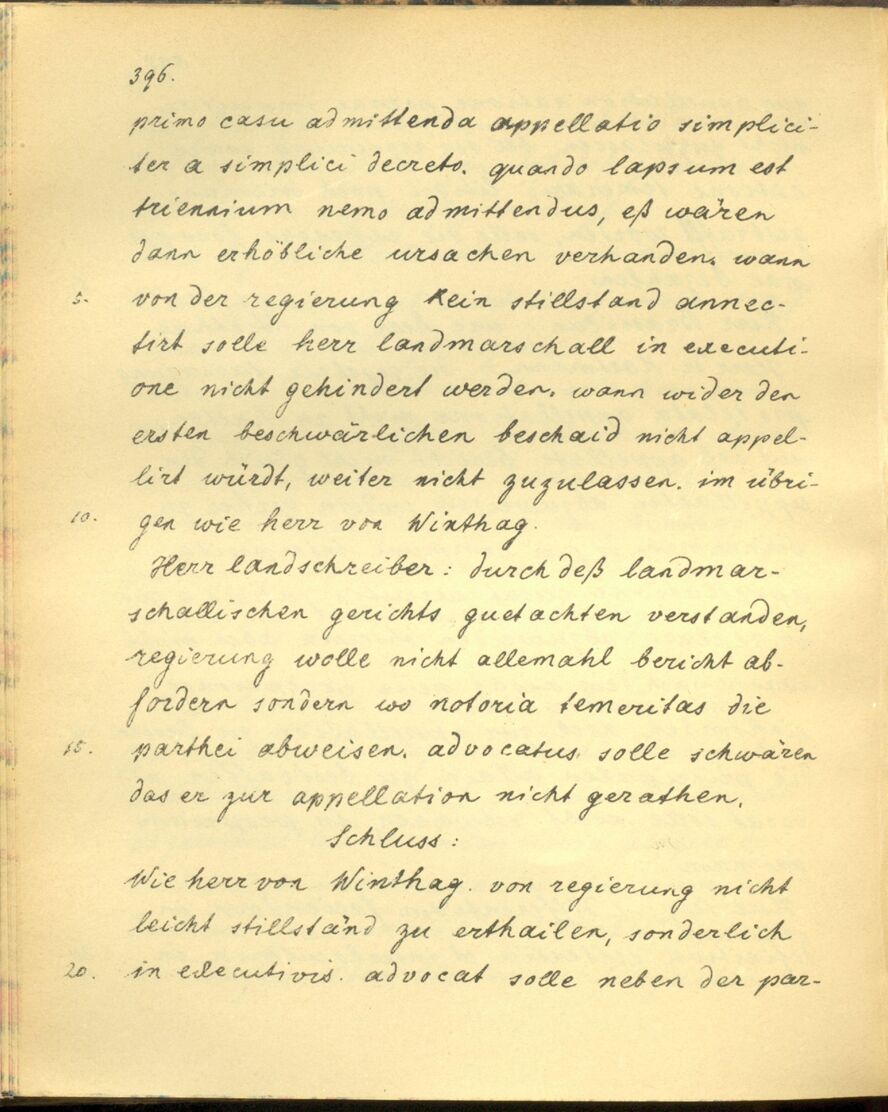 396.
primo casu admittenda appellatio simplici-
ter a simplici decreto. quando lapsum est
triennium nemo admittendus, eß wären
dann erhöbliche ursachen verhanden. wann
5. von der regierung kein stillstand annec-
tirt solle herr landmarschall in executi-
one nicht gehindert werden. wann wider den
ersten beschwärlichen beschaid nicht appel-
lirt würdt, weiter nicht zuzulassen. im übri-
10. gen wie herr von Winthag.
Herr landschreiber: durch deß landmar-
schallischen gerichts guetachten verstanden,
regierung wolle nicht allemahl bericht ab-
fordern sondern wo notoria temeritas die
15. parthei abweisen. advocatus solle schwären
das er zur appellation nicht gerathen.
Schluss:
Wie herr von Winthag. von regierung nicht
leicht stillständ zu erthailen, sonderlich
20. in executivis. advocat solle neben der par-